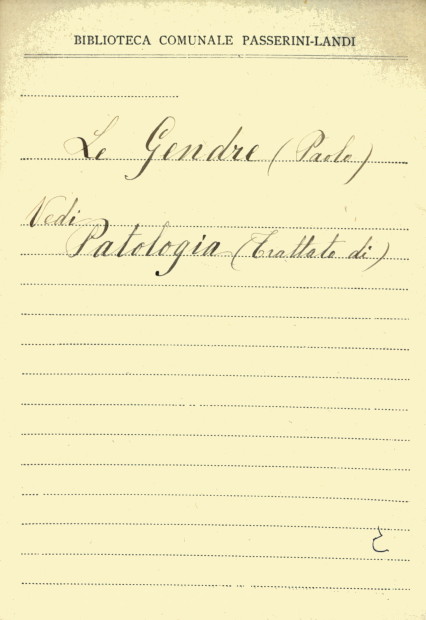 BIBLIOTECA COMUNALE PASSERINI-LANDI
Le Gendre (Paolo)
Vedi
Patologia (Trattato di)